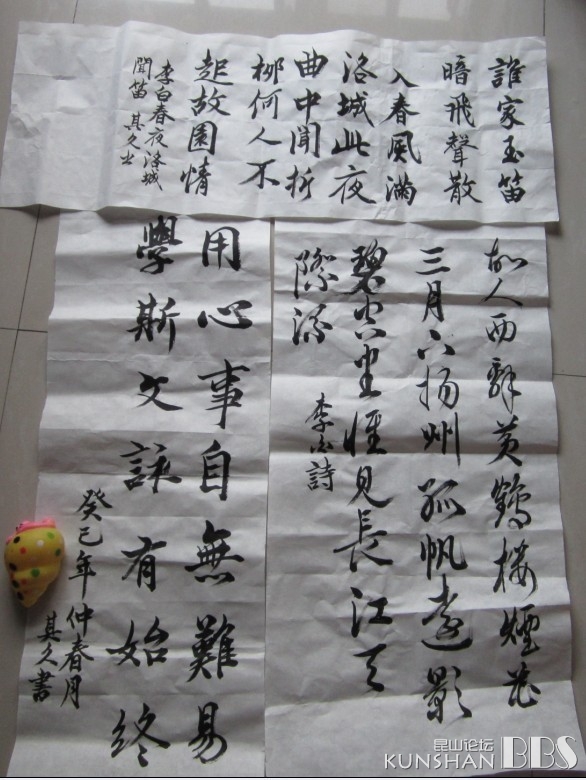 誰家玉笛
暗飛聲散
入春風滿
洛城此夜
曲中聞折
柳何人不
起故園情
李白春夜洛城
聞笛 其久书
故人西辭黄鶴楼煙花
三月下揚州孤帆遠影
碧空盡惟見長江天
際流
李白詩
用心事自無難易
學斯文詠有始終
癸巳年仲春月
其久書
昆山论坛
KUNSHAN BBS